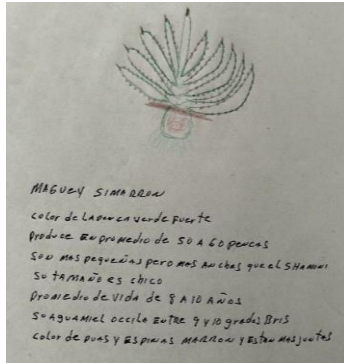 MAGUEY SIMARRON
Color de la penca verde fuerte
Produce en promedio de 50 A 60 pencas
SON MAS pequeñas pero mas anchas que el SHAMNI
SU TAMAÑO es chico
Promedio de vida de 8 A 10 AÑOS
SU AGUAMIEL occila ENTRE 9 y 10 grados Bris
Color de puas y ESPINAS MARRON y ESTAN MAS juntas